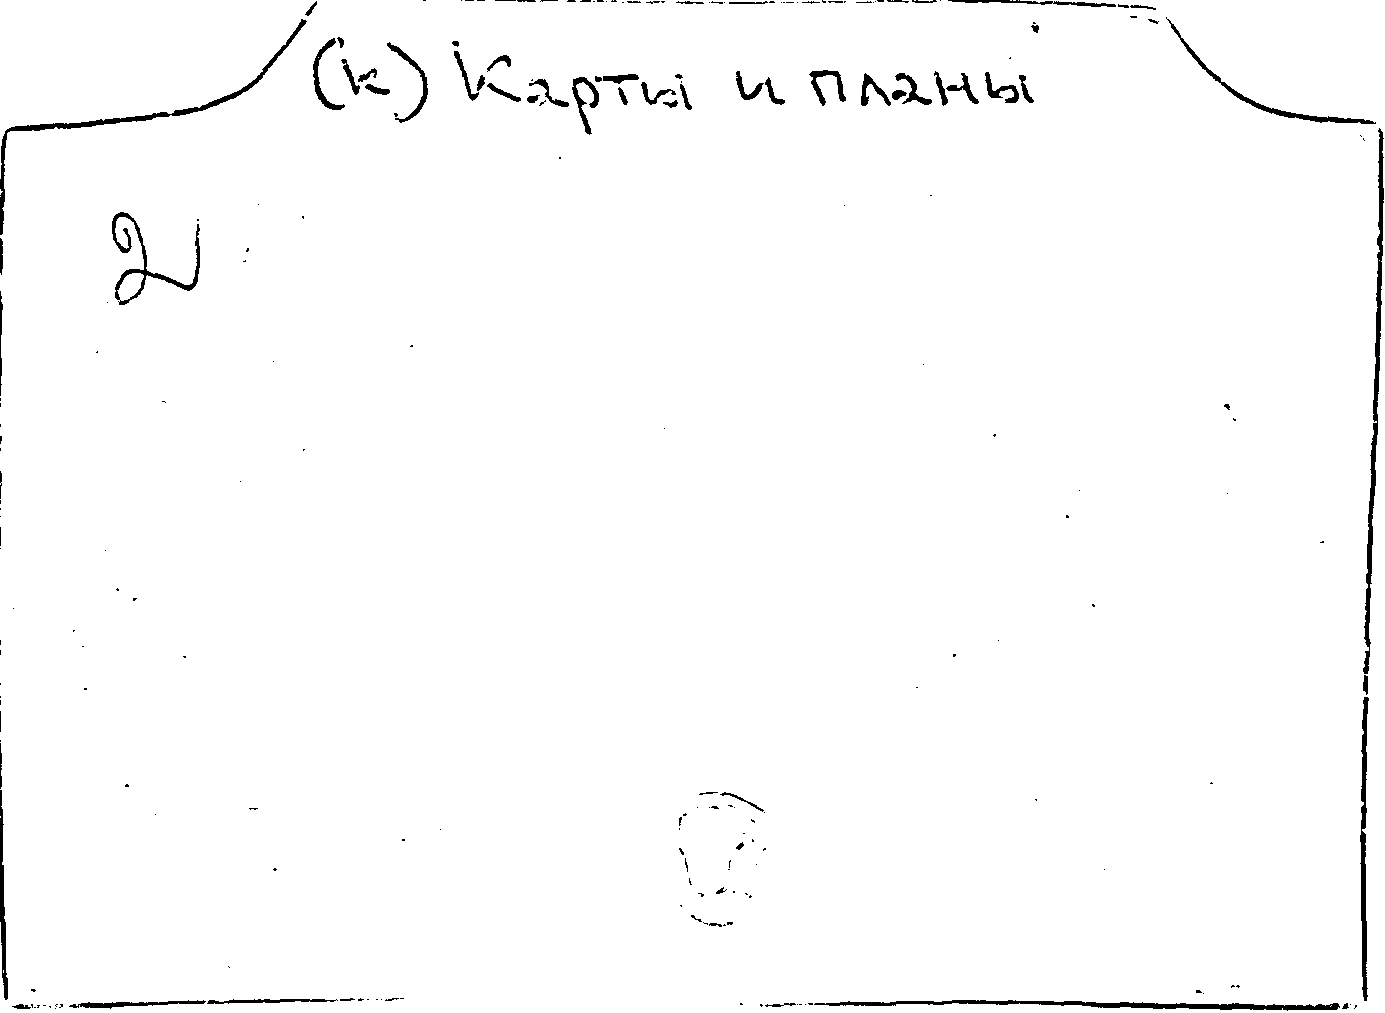 (к) Карты и планы
2